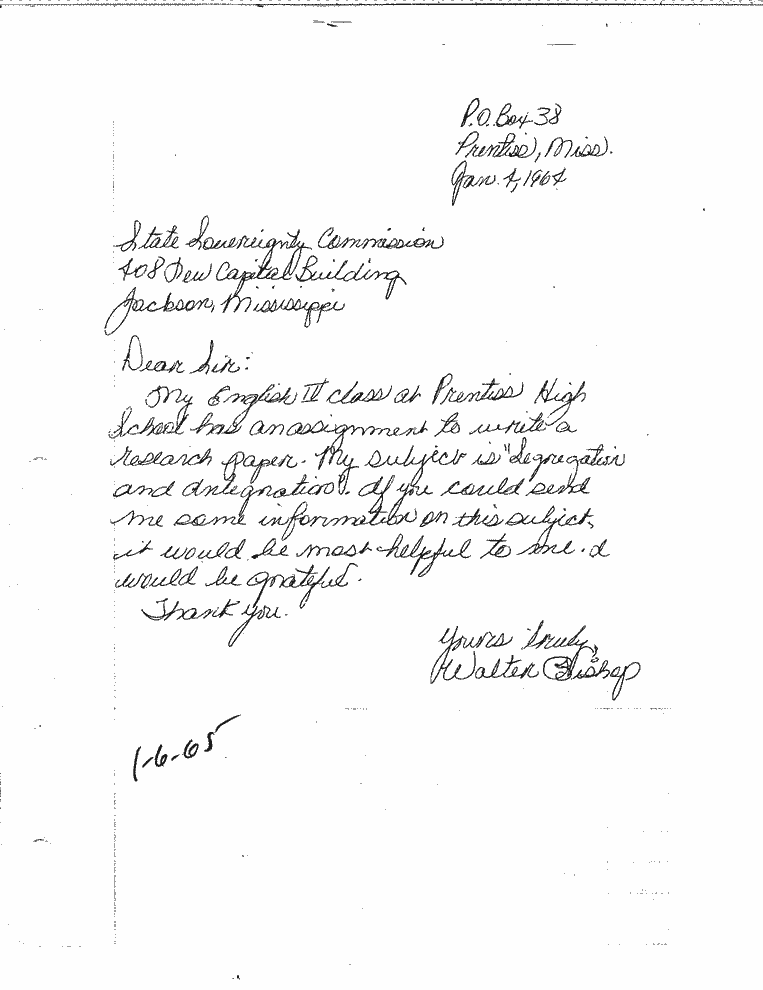 P.O. Box 38
Prentiss, Miss.
Jan. 4, 1964
State Sovereignty Commission
408 New Capital Building
Jackson, Mississippi
Dear Sir:
My English IV class at Prentiss High
School has an assignment to write a
research paper. My subject is "Segregation
and Integration". If you could send
me some information on this subject,
it would be most helpful to me. I
would be grateful.
Thank you.
Yours truly,
Walter Bishop
1-6-65